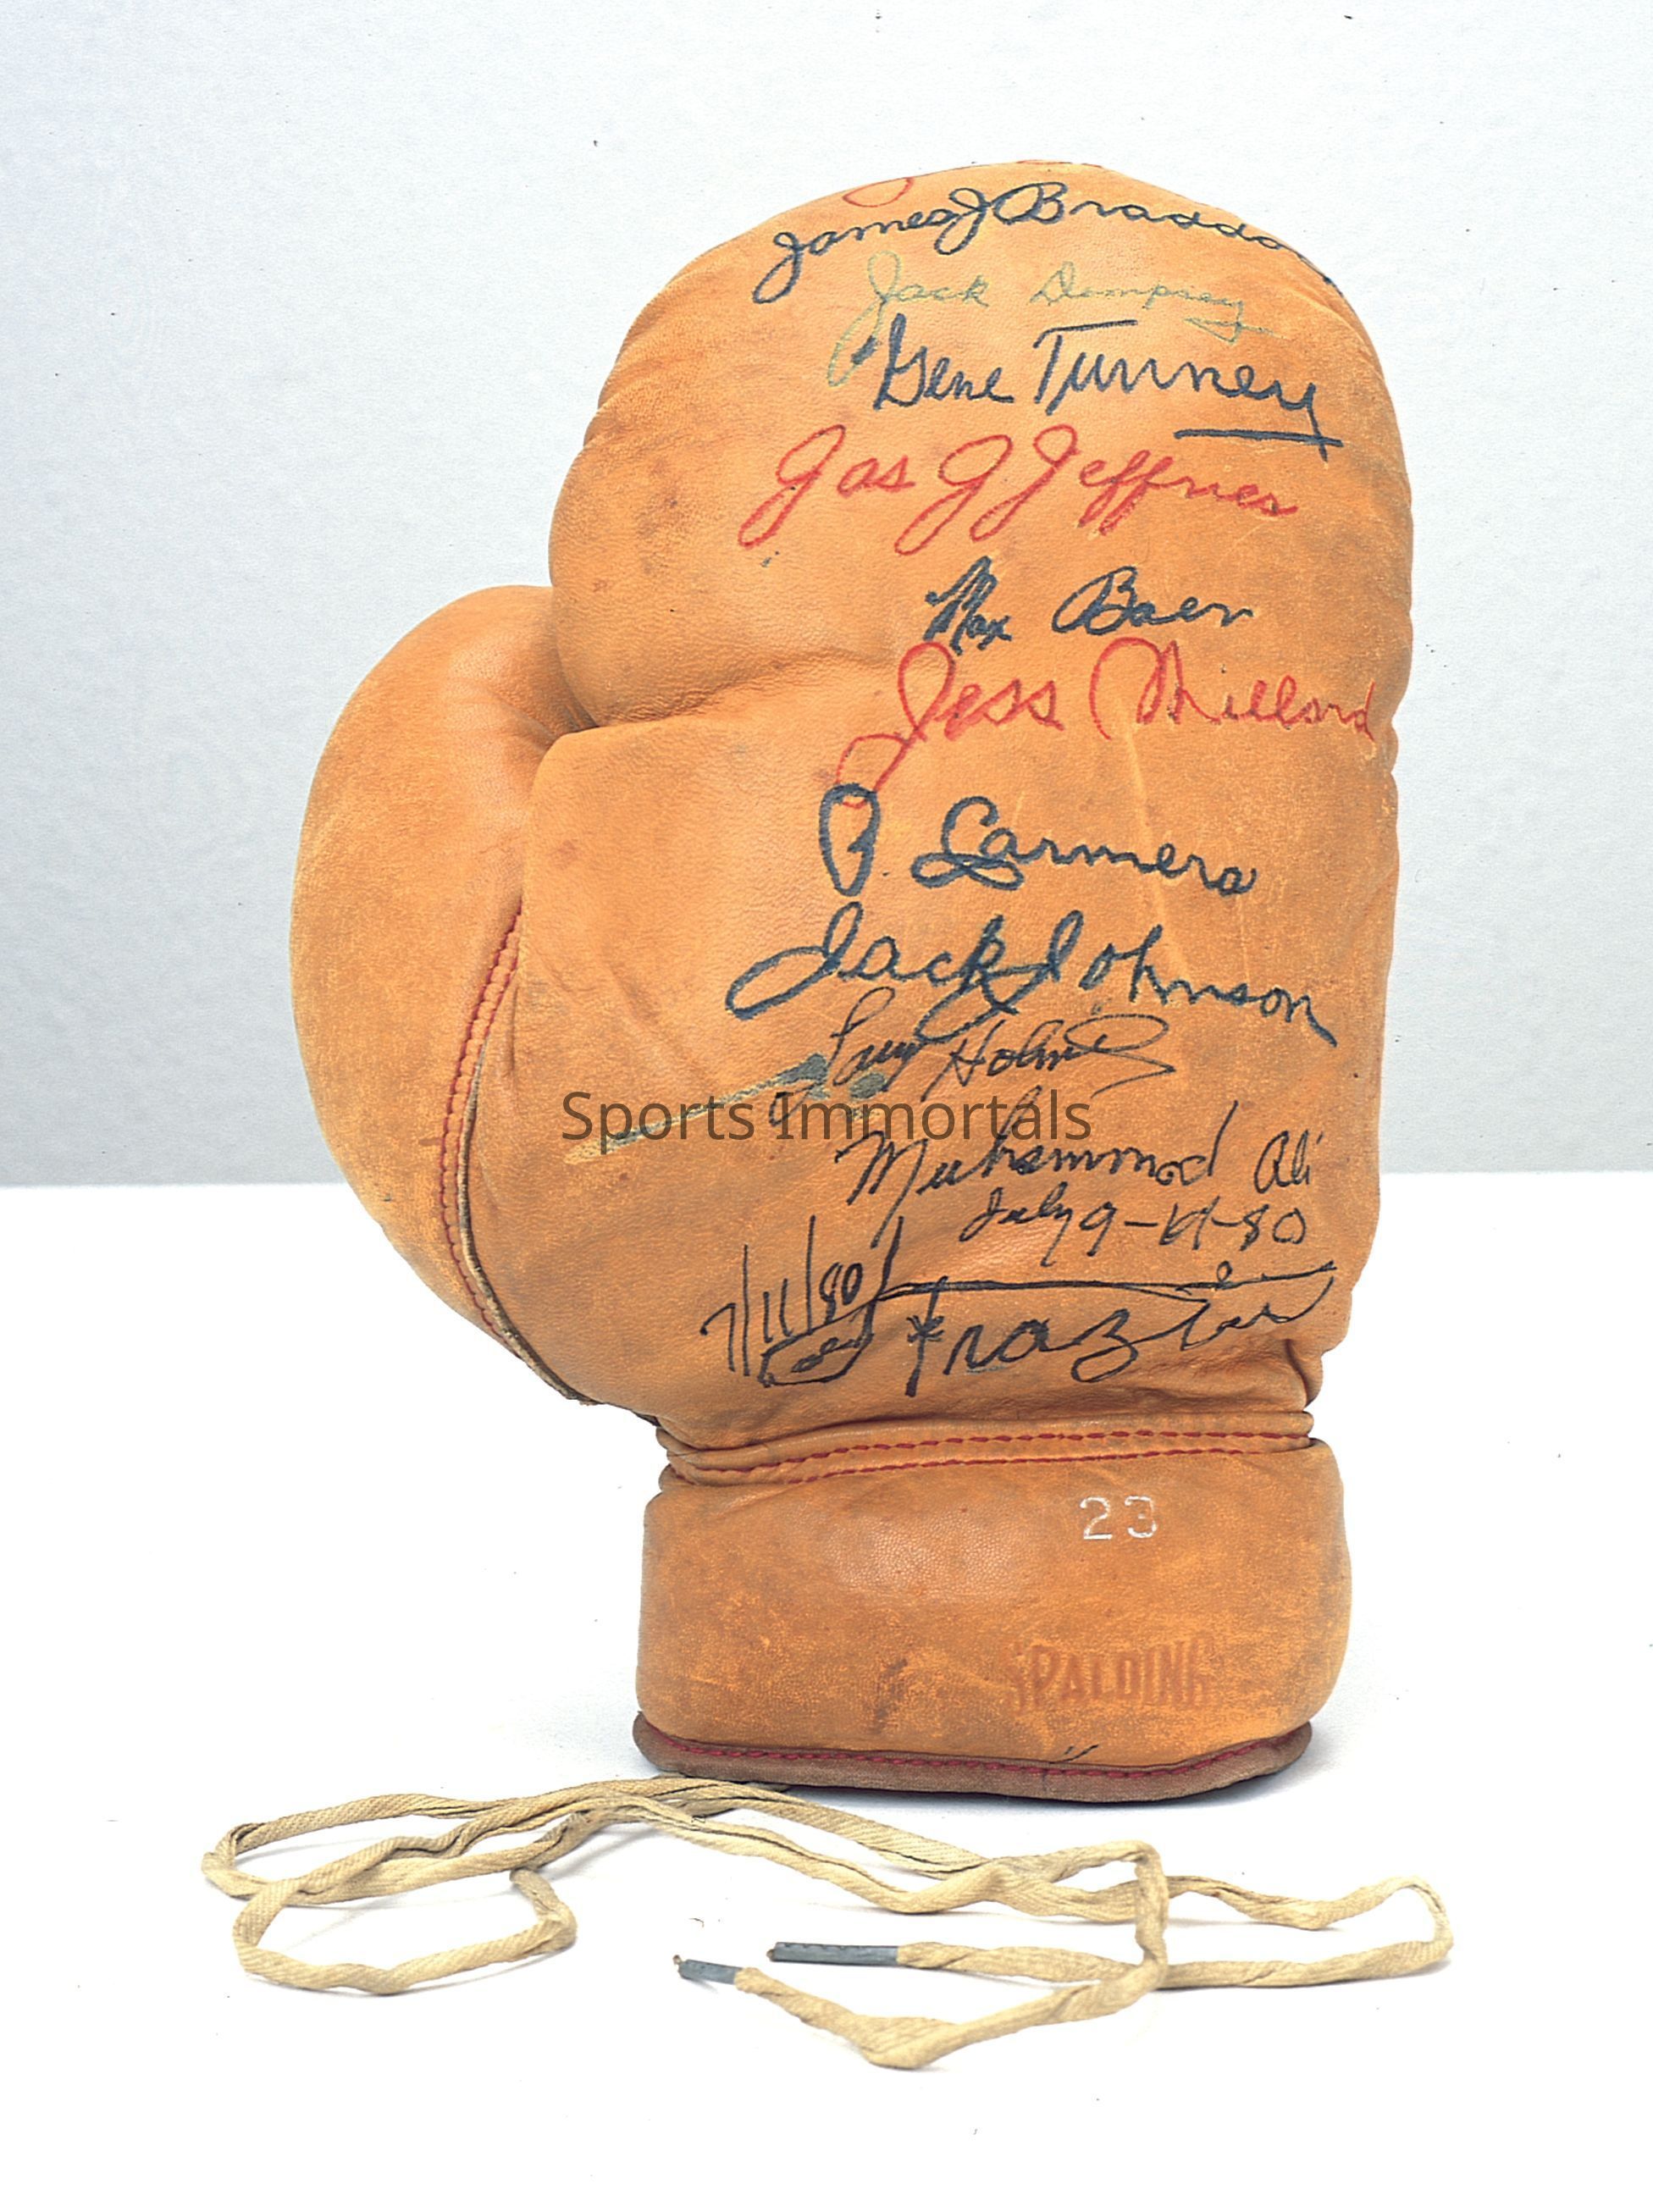 James J Braddo
Jack Dempsey
Gene Tunney
Jas J Jeffries
Max Baer
Jess Willard
P. Carnera
Jack Johnson
Larry Holmes
Sports Immortals
Muhammad Ali
July 9-11-80
7/11/80
Joe Frazier
23
SPALDING